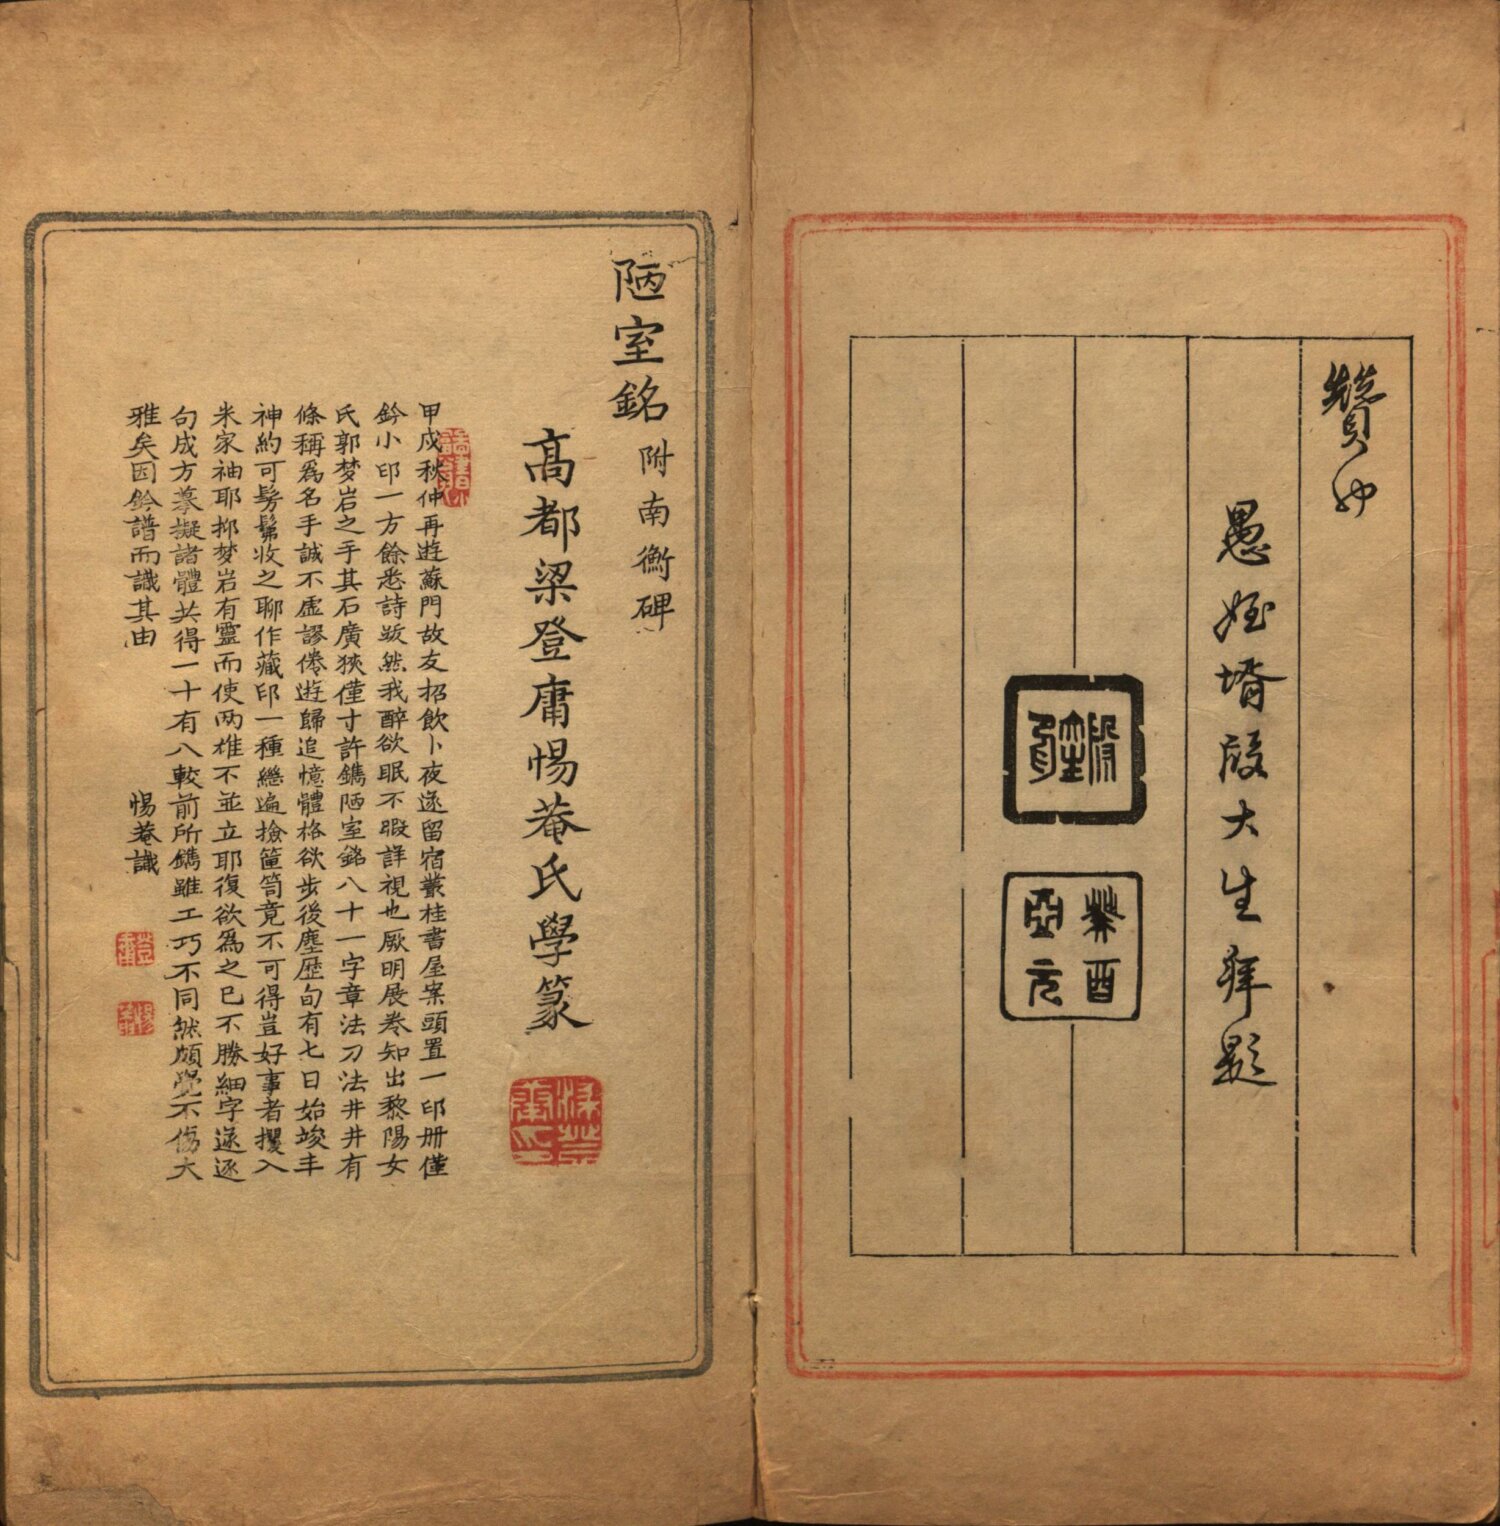 贊曰
愚姪壻段大生拜題
癸酉
亞元
陋室銘附南衡碑
高都梁登庸惕菴氏學篆
甲戌秋仲再遊蘇門故友招飲卜夜遂留宿叢桂書屋案頭置一印册僅
鈐小印一方餘悉詩跋然我醉欲眠不暇詳視也厥明展卷知出黎陽女
氏郭梦岩之手其石廣狹僅寸許鐫陋室銘八十一字章法刀法井井有
條稱為名手誠不虛謬倦遊歸追憶體格欲步後塵歷旬有七日始竣丰
神約可髣髴收之聊作藏印一種繼遍撿筐笥竟不可得豈好事者攫入
米家袖耶抑梦岩有靈而使两雄不並立耶復欲為之已不勝細字遂逐
句成方摹擬諸體共得一十有八較前所鐫雖工巧不同然頗覺不傷大
雅矣因鈐譜而識其由
惕菴識